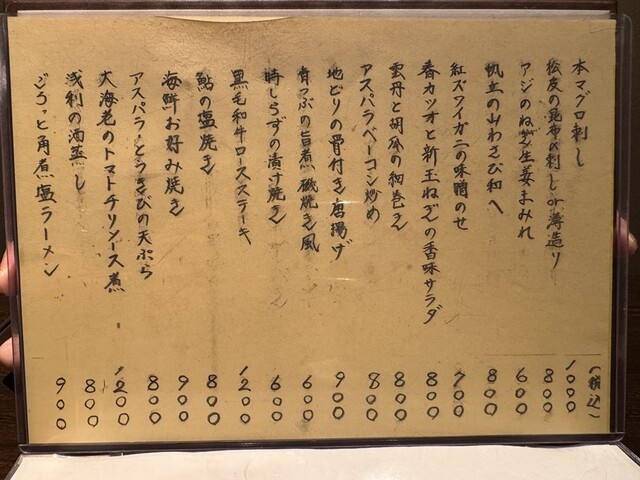 (税込)
本マグロ刺し 1000
松皮の昆布〆刺し or 薄造り 800
アジのねぎ生姜まみれ 600
帆立の山わさび和へ 800
紅ズワイガニの味噌のせ 700
春カツオと新玉ねぎの香味サラダ 800
雲丹と胡瓜の細巻き 800
アスパラベーコン炒め 800
地どりの骨付き唐揚げ 900
青つぶの旨煮 磯焼き風 600
時しらずの漬け焼き 600
黒毛和牛ロースステーキ 1200
鮎の塩焼き 800
海鮮お好み焼き 900
アスパラ・とうきびの天ぷら 800
大海老のトマトチリソース煮 1200
浅利の酒蒸し 800
ごろっと角煮塩ラーメン 900